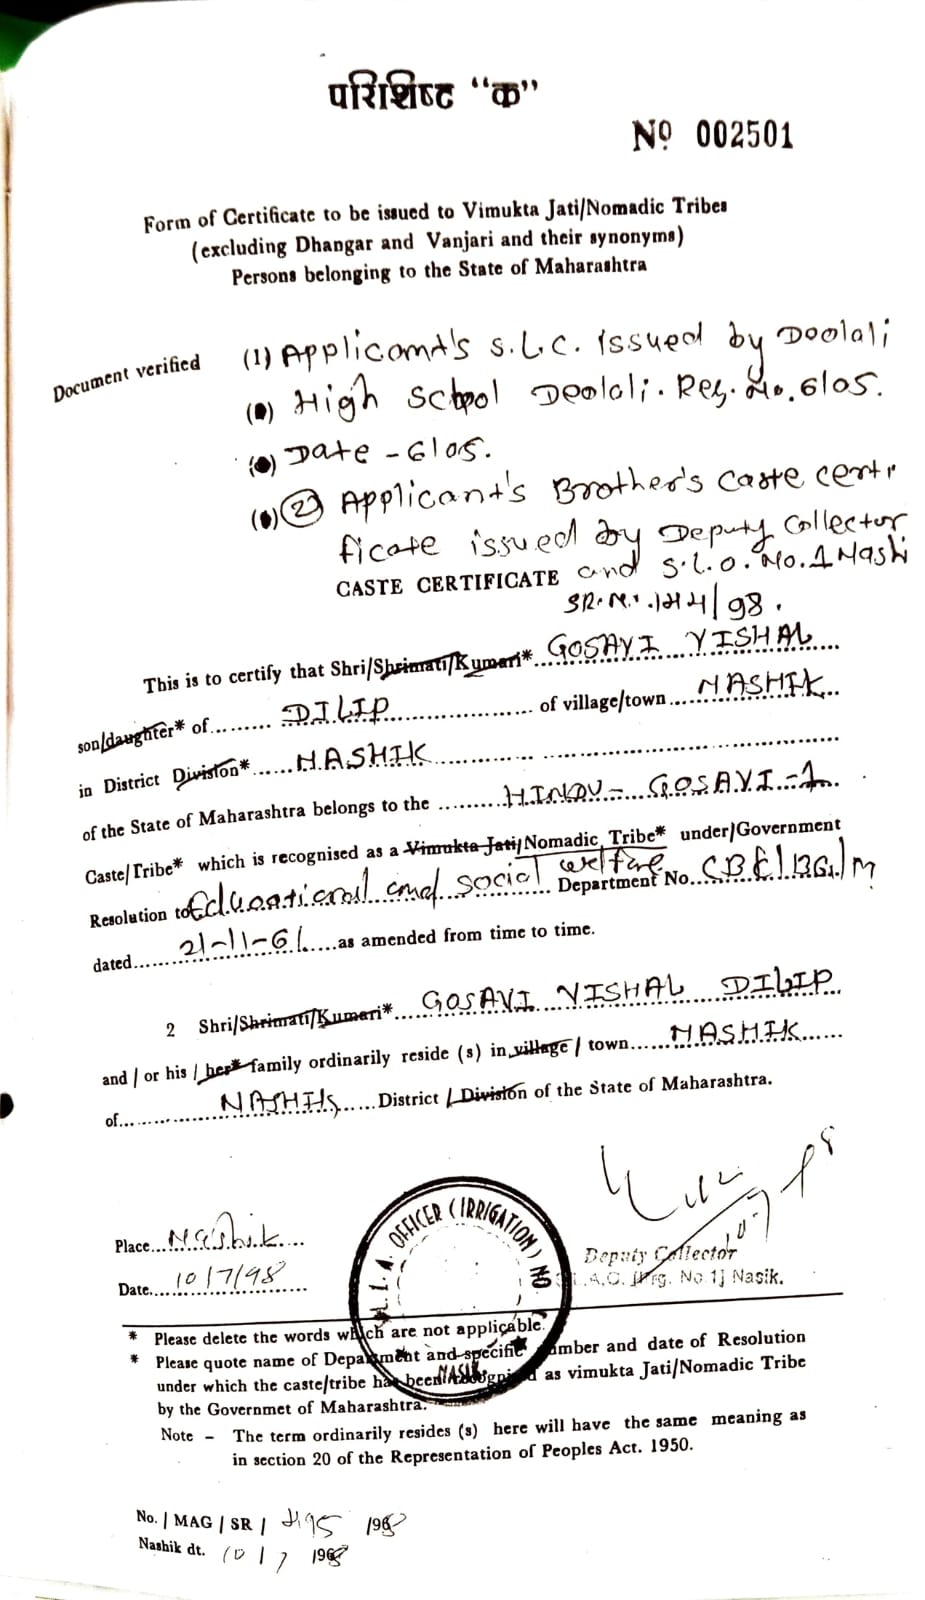 परिशिष्ट “क”
Nº 002501
Form of Certificate to be issued to Vimukta Jati/Nomadic Tribes
(excluding Dhangar and Vanjari and their synonyms)
Persons belonging to the State of Maharashtra
Document verified (1) Applicant's S.L.C. issued by Deolali
High School Deolali. Reg. No. 6105.
Date - 6105.
(2) Applicant's Brother's Caste certi
ficate issued by Deputy Collector
CASTE CERTIFICATE and S.L.O. No. 1 Nashi
/98.
This is to certify that Shri/Shrimati/Kumari* GOSAVI VISHAL
son/daughter* of DILIP of village/town NASHIK
in District Division* NASHIK
of the State of Maharashtra belongs to the HINDU - GOSAVI - 1
Caste/Tribe* which is recognised as a Vimukta Jati/Nomadic Tribe* under/Government
Resolution to Educational and social welfare Department No. CBE/BG/M
dated 21-11-61 as amended from time to time.
2 Shri/Shrimati/Kumari* GOSAVI VISHAL DILIP
and / or his / her* family ordinarily reside (s) in village / town NASHIK
of NASHIK District / Division of the State of Maharashtra.
Place Nashik
Date 10/7/98
OFFICER (IRRIGATION) NO
NASIK
Deputy Collector
.A.O. Irrg. No. 1] Nasik.
* Please delete the words which are not applicable.
* Please quote name of Department and specific number and date of Resolution
under which the caste/tribe has been recognised as vimukta Jati/Nomadic Tribe
by the Governmet of Maharashtra.
Note – The term ordinarily resides (s) here will have the same meaning as
in section 20 of the Representation of Peoples Act. 1950.
No. / MAG / SR / /198
Nashik dt. 10 / 7 198